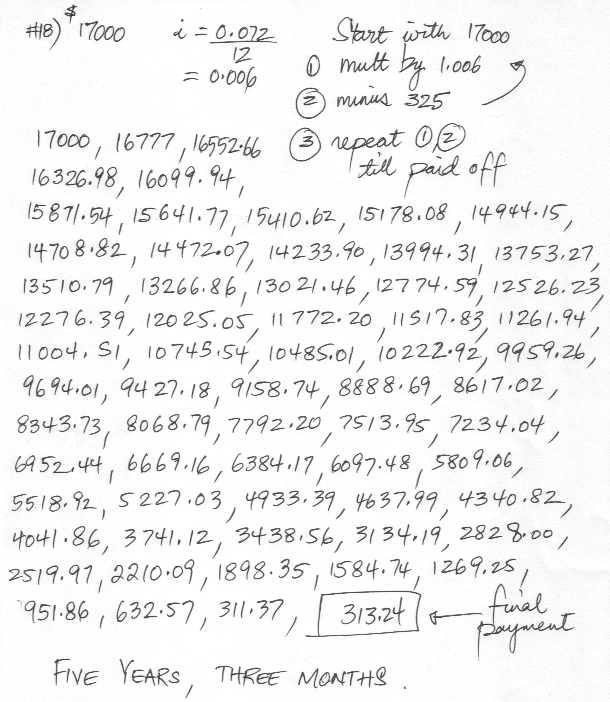 #18) $17000 i = 0.072 Start with 17000
12
= 0.006 ① mult by 1.006
② minus 325
17000, 16777, 16552.66 ③ repeat ①②
till paid off
16326.98, 16099.94,
15871.54, 15641.77, 15410.62, 15178.08, 14944.15,
14708.82, 14472.07, 14233.90, 13994.31, 13753.27,
13510.79, 13266.86, 13021.46, 12774.59, 12526.23,
12276.39, 12025.05, 11772.20, 11517.83, 11261.94,
11004.51, 10745.54, 10485.01, 10222.92, 9959.26,
9694.01, 9427.18, 9158.74, 8888.69, 8617.02,
8343.73, 8068.79, 7792.20, 7513.95, 7234.04,
6952.44, 6669.16, 6384.17, 6097.48, 5809.06,
5518.92, 5227.03, 4933.39, 4637.99, 4340.82,
4041.86, 3741.12, 3438.56, 3134.19, 2828.00,
2519.97, 2210.09, 1898.35, 1584.74, 1269.25,
951.86, 632.57, 311.37, 313.24 ← final
payment
FIVE YEARS, THREE MONTHS.